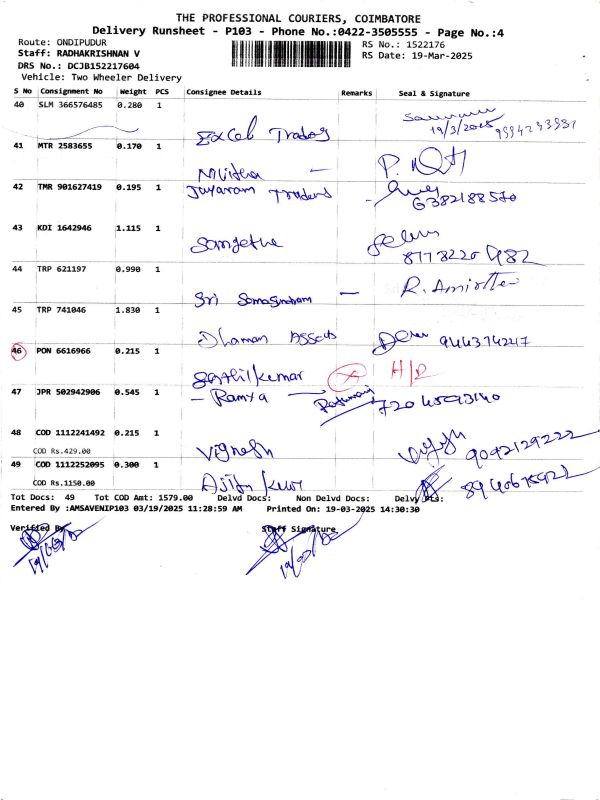 THE PROFESSIONAL COURIERS, COIMBATORE
Delivery Runsheet - P103 - Phone No.:0422-3505555 - Page No.:4
Route: ONDIPUDUR RS No.: 1522176
Staff: RADHAKRISHNAN V RS Date: 19-Mar-2025
DRS No.: DCJB152217604
Vehicle: Two Wheeler Delivery
S No Consignment No Weight PCS Consignee Details Remarks Seal & Signature
40 SLM 366576485 0.280 1
Excel Traders 19/3/2025 9994233931
41 MTR 2583655 0.170 1
Nivitha
42 TMR 901627419 0.195 1 Jayaram Traders
6382188570
43 KDI 1642946 1.115 1
Sangetha
44 TRP 621197 0.990 1
Sri R. Amirtha
45 TRP 741046 1.830 1
Dhaman Assets
46 PON 6616966 0.215 1
H/R
47 JPR 502942906 0.545 1 - Ramya 7204593140
48 COD 1112241492 0.215 1
COD Rs.429.00 Vignesh 9092129222
49 COD 1112252095 0.300 1
COD Rs.1150.00
Tot Docs: 49 Tot COD Amt: 1579.00 Delvd Docs: Non Delvd Docs: Delvy Pts:
Entered By :AMSAVENIP103 03/19/2025 11:28:59 AM Printed On: 19-03-2025 14:30:30
Verified By Staff Signature